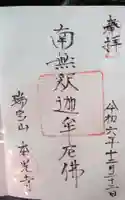 奉拝
令和六年十二月十三日
南無釈迦牟尼佛
瑞宝山
本光寺